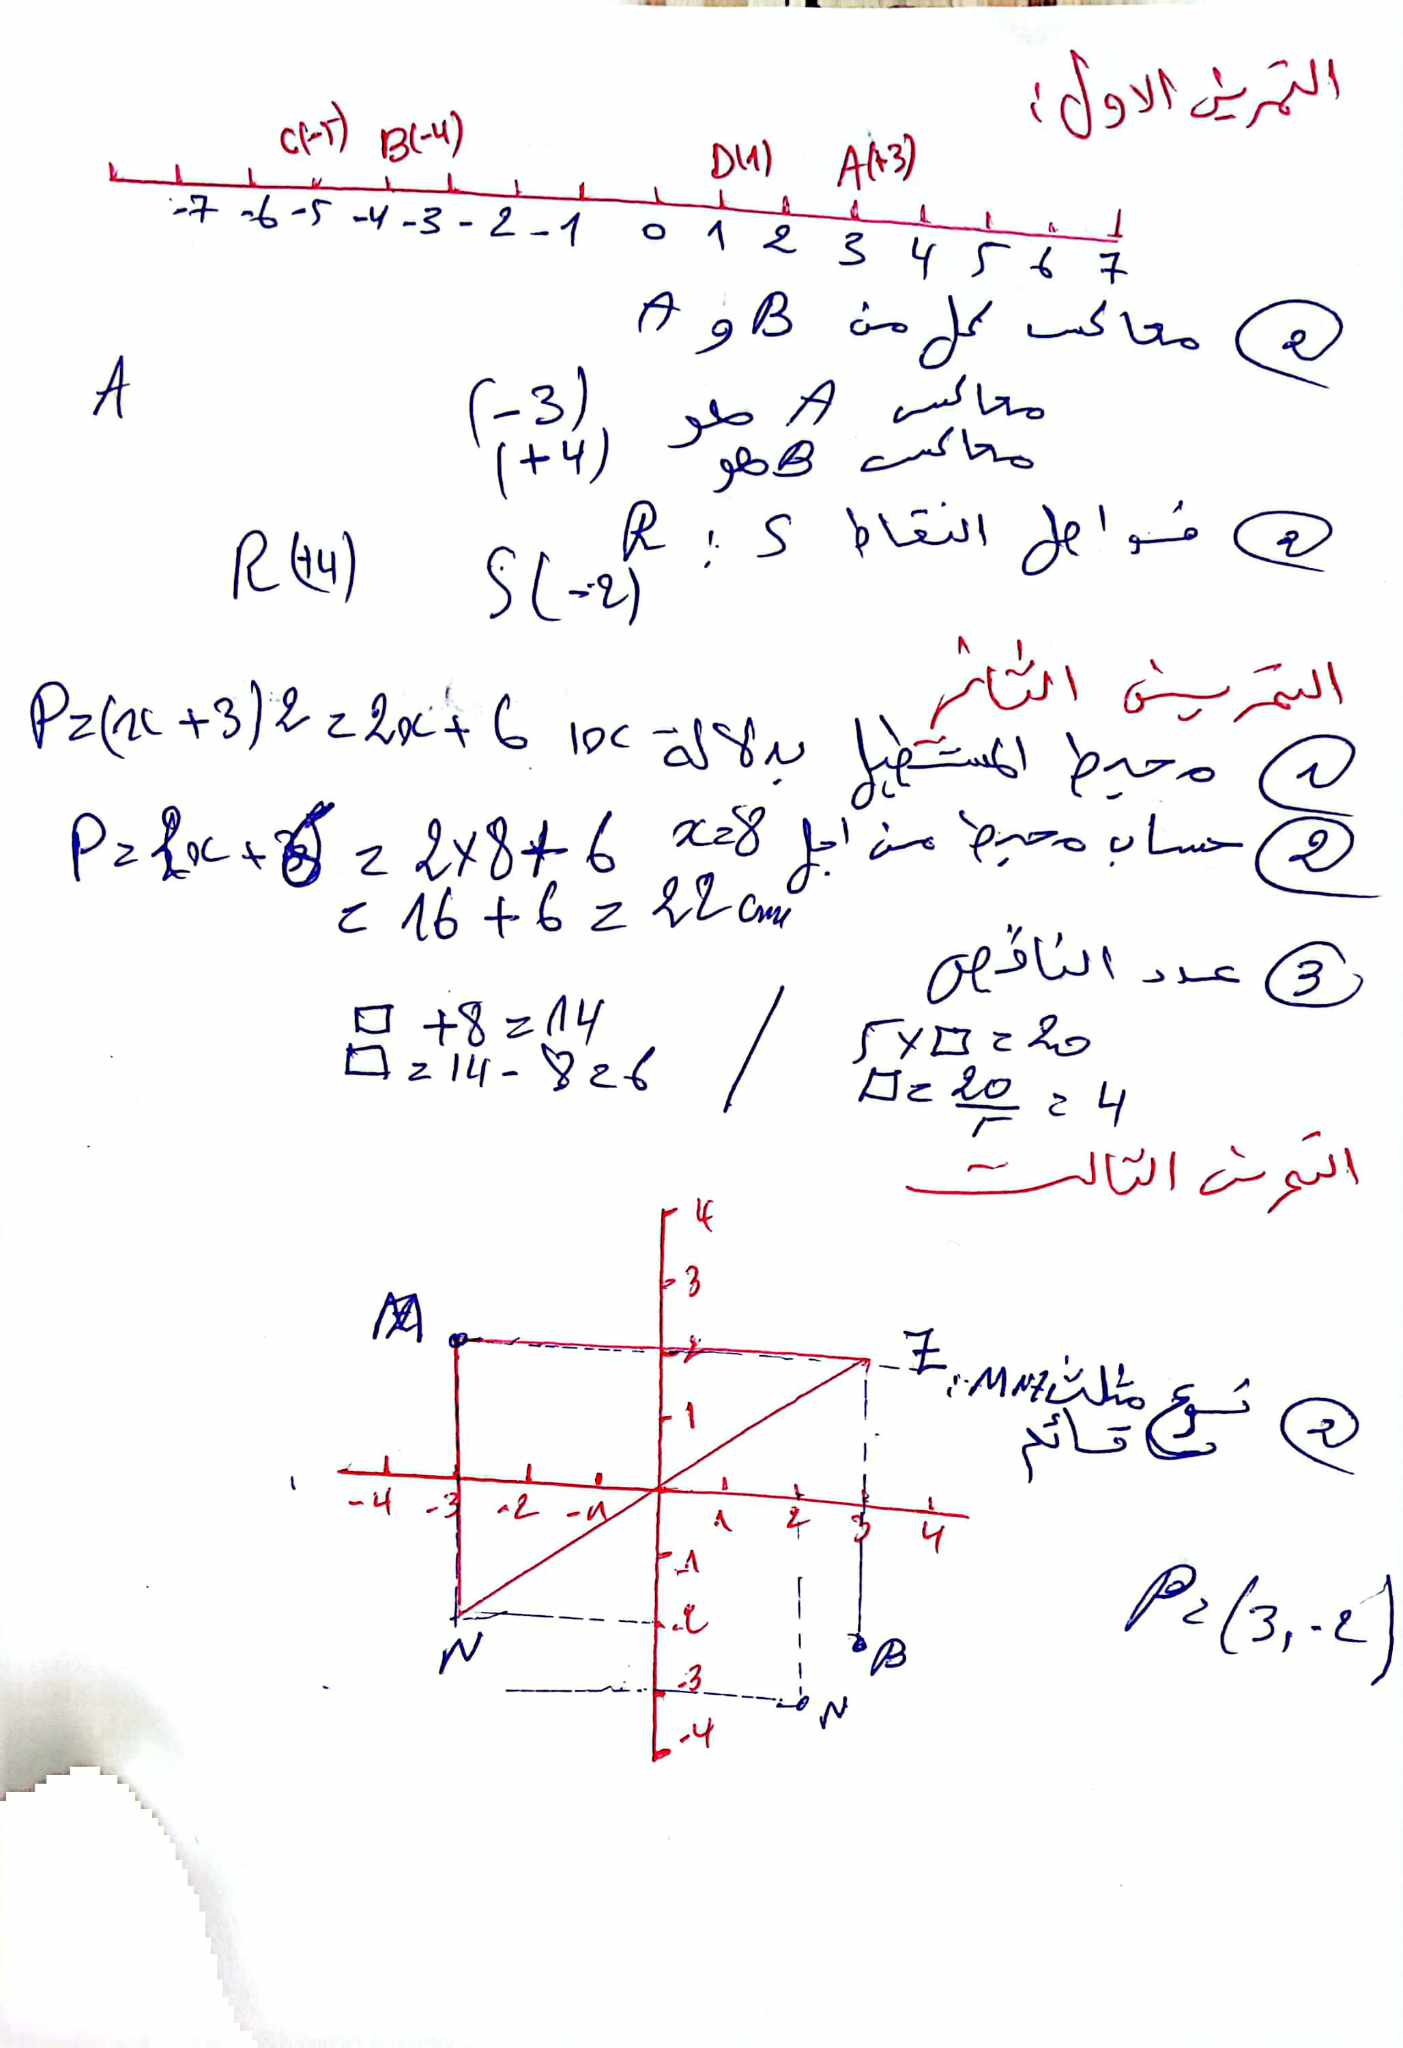 التمرين الاول :
C(-5) B(-4) D(1) A(+3)
-7 -6 -5 -4 -3 -2 -1 0 1 2 3 4 5 6 7
2 معاكس كل من B و A
A
معاكس A هو (-3)
معاكس B هو (+4)
2 فواصل النقاط R ; S
R(+4) S(-2)
التمرين الثاني
1 محيط المستطيل بدلالة x P=(x+3)2=2x+6
2 حساب محيط من اجل x=8 P=2x+6 = 2x8+6
= 16+6=22cm
3 عدد الناقص
5x□=20
□=20/5=4
□+8=14
□=14-8=6
التمرين الثالث
4
3
M 2 Z
1
-4 -3 -2 -1 1 2 3 4
-1
-2
N B
-3
N
-4
2 نوع مثلث MNZ :
قائم
P=(3,-2)